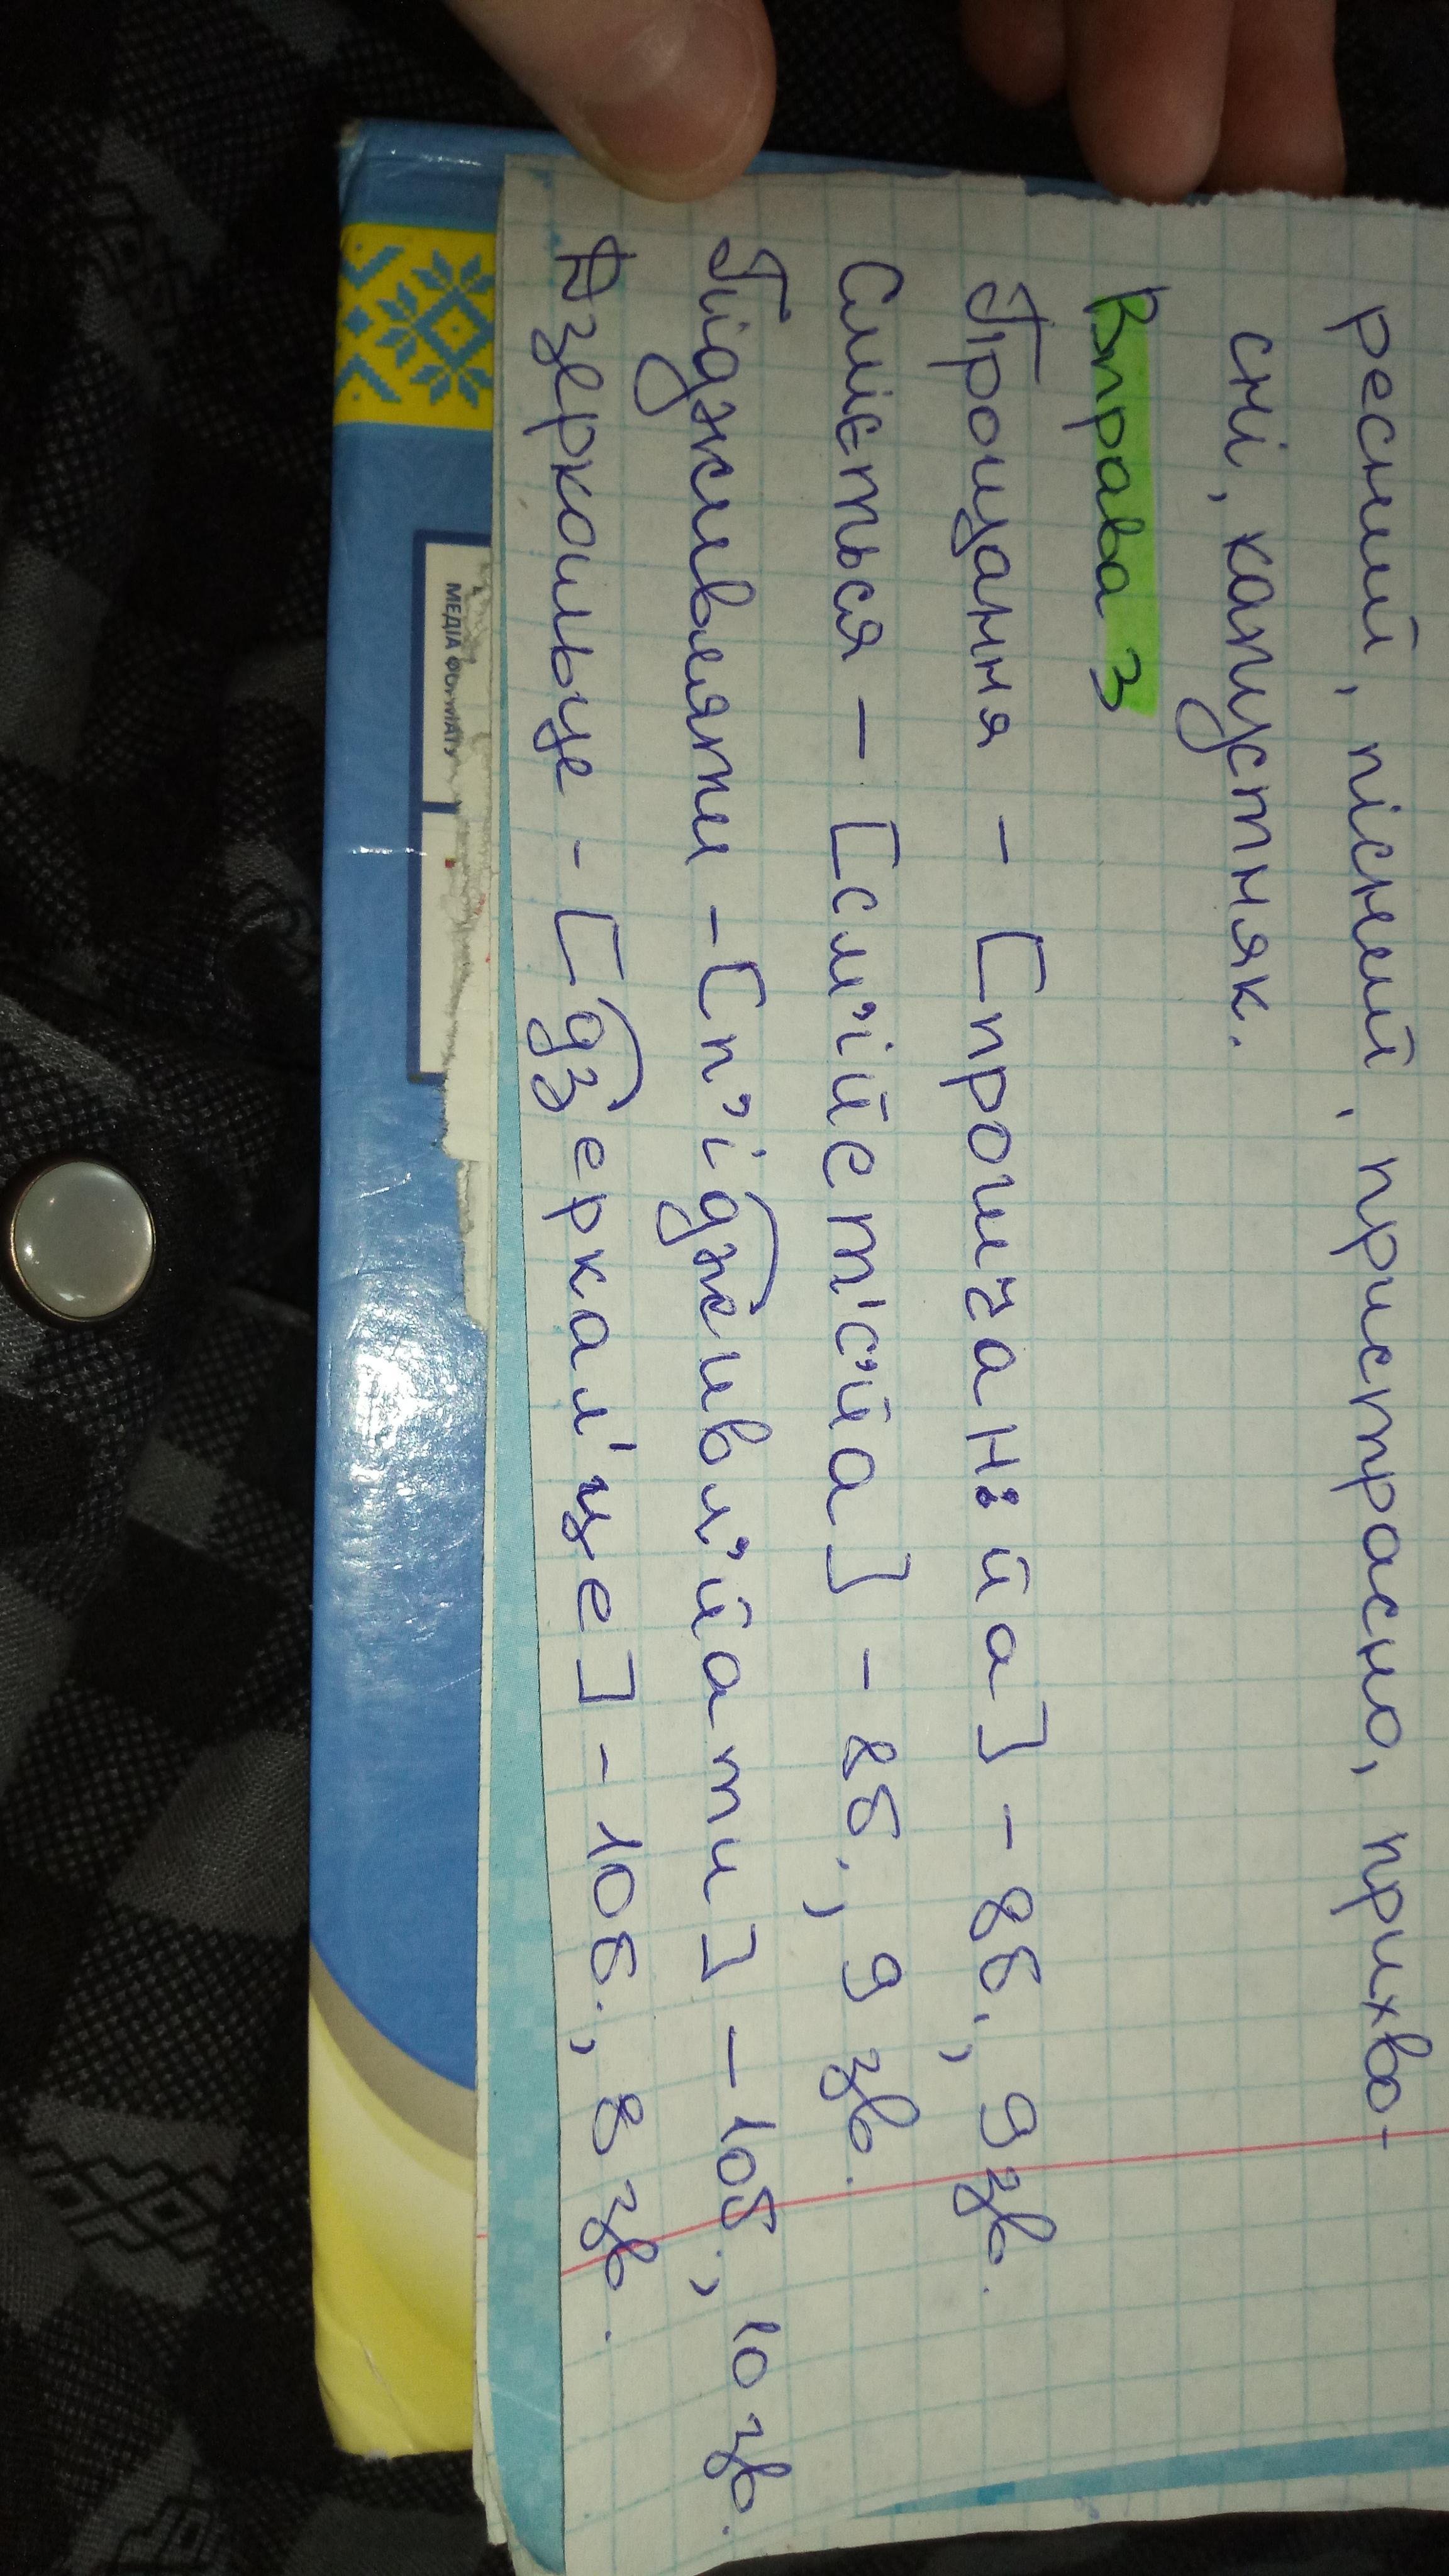 ресний, пісний, пристрасно, прихво-
сні, капустняк.
Вправа 3
Прощання - [прошчан: йа] - 8б., 9 зв.
Сміється - [см'ійет'с'йа] - 8б., 9 зв.
Підживляти - [п'ідживл'йати] - 10б., 10 зв.
Дзеркальце - [дзеркал'це] - 10б., 8 зв.
МЕДІА ФОРМАТУ